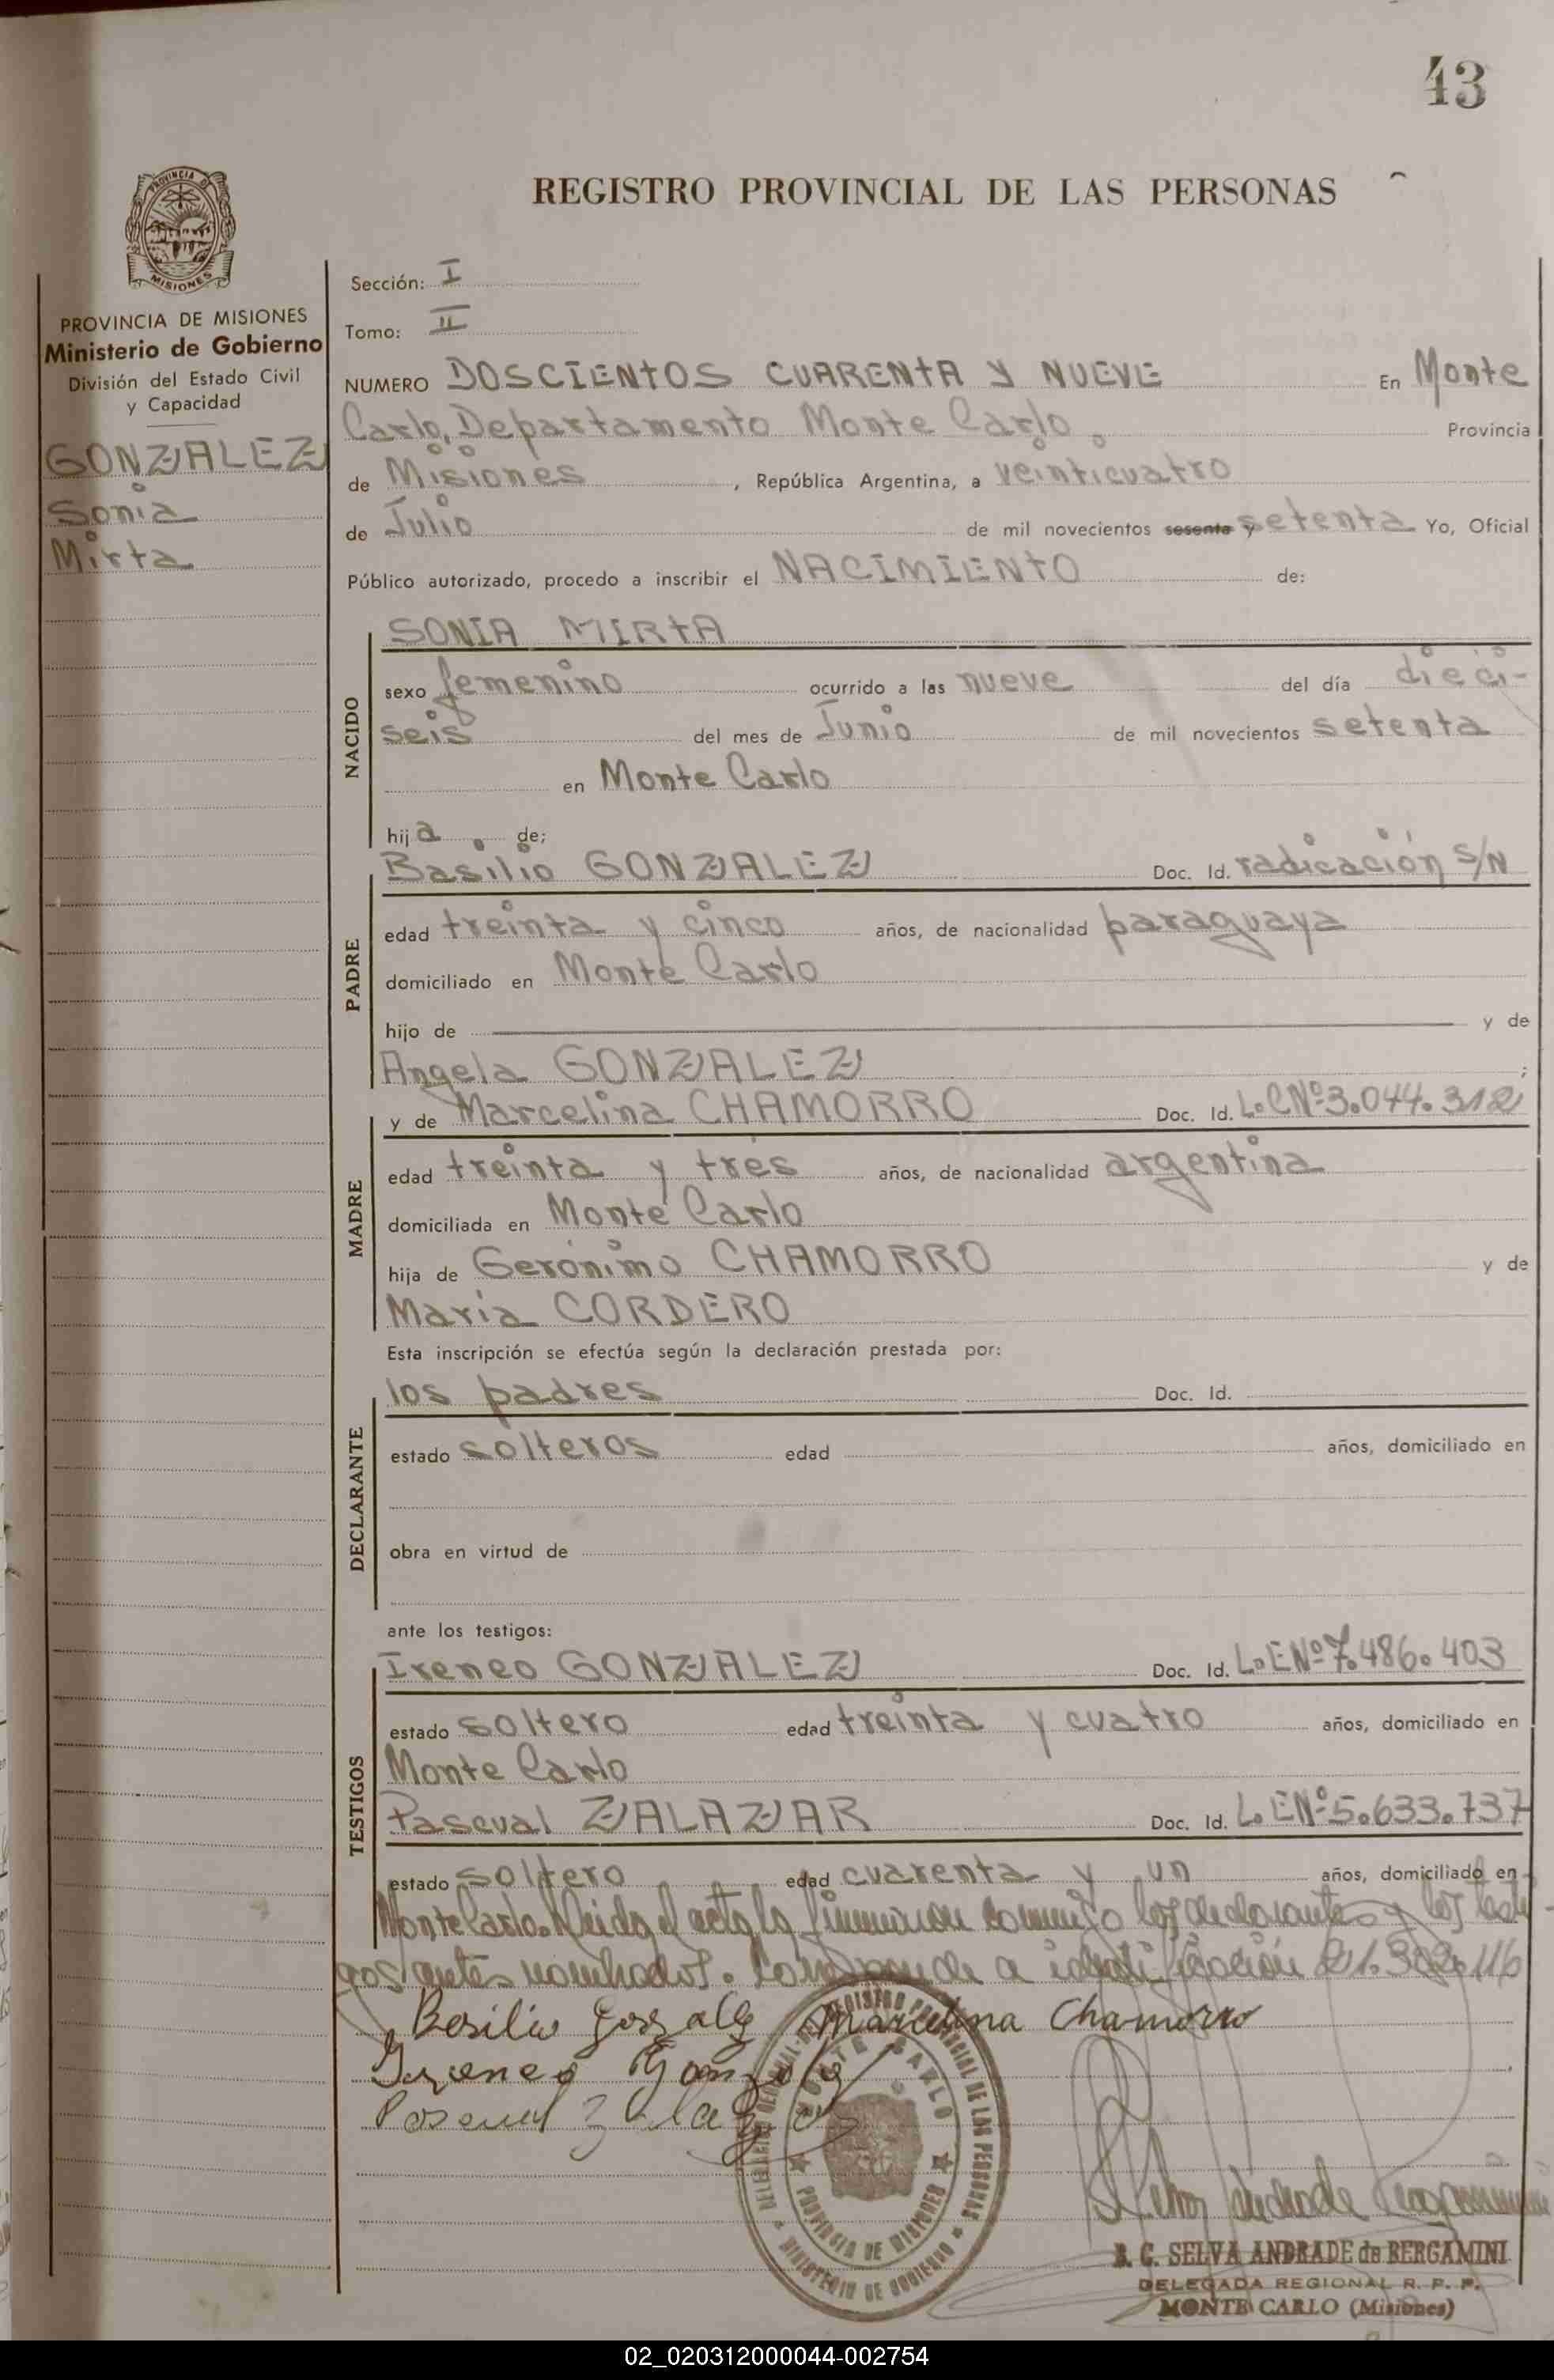 43
REGISTRO PROVINCIAL DE LAS PERSONAS
PROVINCIA DE MISIONES
PROVINCIA DE MISIONES
Ministerio de Gobierno
División del Estado Civil
y Capacidad
GONZALEZ
Sonia
Mirta
Sección: I
Tomo: II
NUMERO DOSCIENTOS CUARENTA Y NUEVE En Monte
Carlo, Departamento Monte Carlo. Provincia
de Misiones, República Argentina, a veinticuatro
de Julio de mil novecientos sesenta y setenta Yo, Oficial
Público autorizado, procedo a inscribir el NACIMIENTO de:
NACIDO
SONIA MIRTA
sexo femenino ocurrido a las nueve del día dieci-
seis del mes de Junio de mil novecientos setenta
en Monte Carlo
hija de;
PADRE
Basilio GONZALEZ Doc. Id. radicación S/N
edad treinta y cinco años, de nacionalidad paraguaya
domiciliado en Monte Carlo
hijo de y de
Angela GONZALEZ ;
MADRE
y de Marcelina CHAMORRO Doc. Id. L.C Nº 3.044.312
edad treinta y tres años, de nacionalidad argentina
domiciliada en Monte Carlo
hija de Gerónimo CHAMORRO y de
María CORDERO
Esta inscripción se efectúa según la declaración prestada por:
DECLARANTE
los padres Doc. Id.
estado solteros edad años, domiciliado en
obra en virtud de
ante los testigos:
TESTIGOS
Ireneo GONZALEZ Doc. Id. L.E Nº 7.486.403
estado soltero edad treinta y cuatro años, domiciliado en
Monte Carlo
Pascual ZALAZAR Doc. Id. L.E Nº 5.633.737
estado soltero edad cuarenta y un años, domiciliado en
Monte Carlo. Leida el acta la firmaron conmigo los declarantes y los testi-
gos antes nombrados. Corresponde a identificación
Basilio Gonzalez Marcelina Chamorro
Ireneo Gonzalez
Pascual Zalazar
REGISTRO PROVINCIAL DE LAS PERSONAS
MONTE CARLO
PROVINCIA DE MISIONES
MINISTERIO DE GOBIERNO
B. C. SELVA ANDRADE de BERGAMINI
DELEGADA REGIONAL R. P. P.
MONTE CARLO (Misiones)
02_020312000044-002754